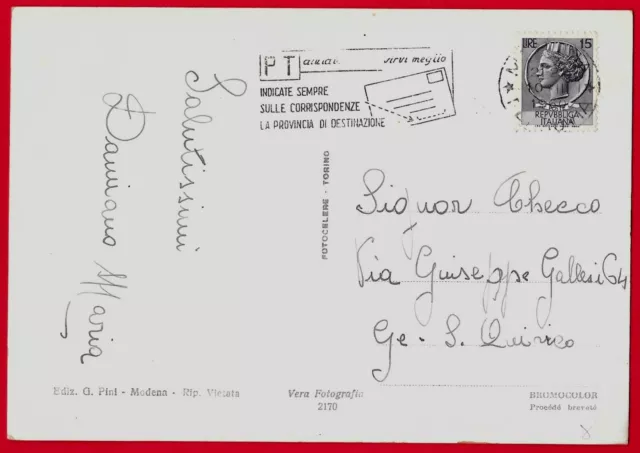 Salutissimi
Damiano Maria
PT aiutateci a servirvi meglio
INDICATE SEMPRE
SULLE CORRISPONDENZE
LA PROVINCIA DI DESTINAZIONE
LIRE 15
REPVBBLICA
ITALIANA
FOTOCELERE - TORINO
Signor Checco
Via Giuseppe Gallesi 64
Ge - S. Quirico
Ediz. G. Pini - Modena - Rip. Vietata
Vera Fotografia
2170
BROMOCOLOR
Procédé breveté